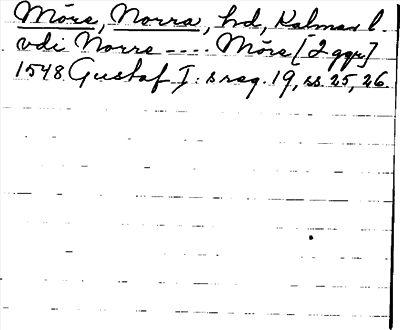 Möre, Norra, hd, Kalmar l.
vdi Norre ---- Möre [2 ggr]
1548 Gustaf I: s reg. 19, ss. 25, 26.